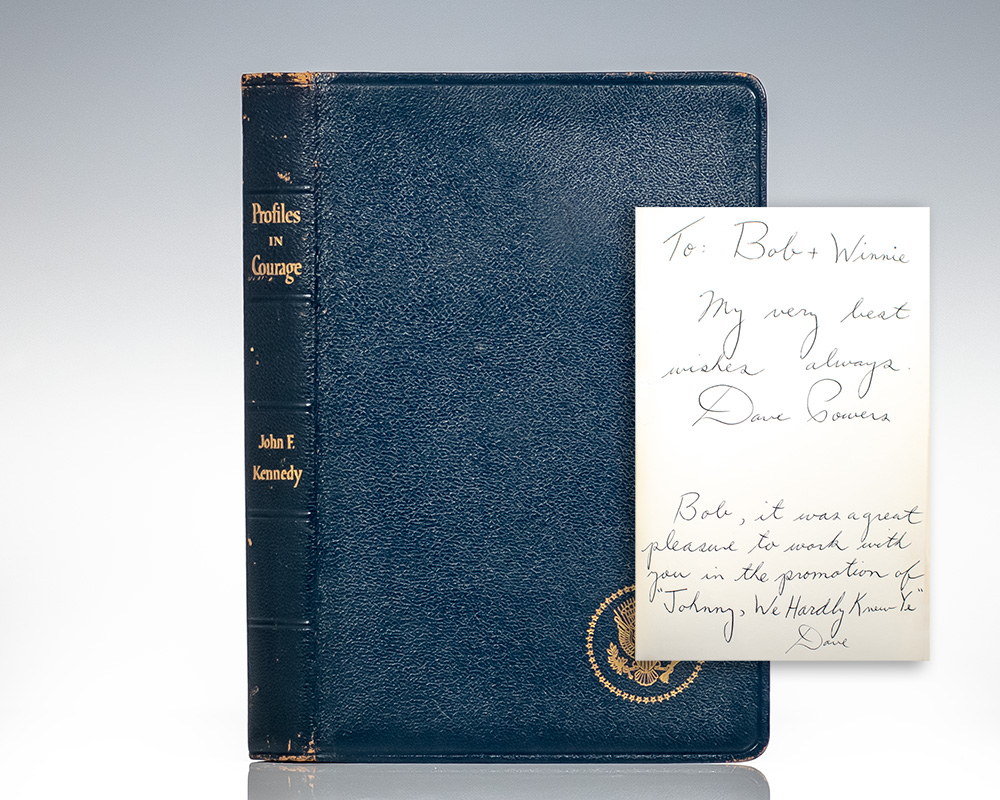 Profiles
IN
Courage
John F.
Kennedy
To: Bob + Winnie
My very best
wishes always.
Dave Powers
Bob, it was a great
pleasure to work with
you in the promotion of
"Johnny, We Hardly Knew Ye"
Dave